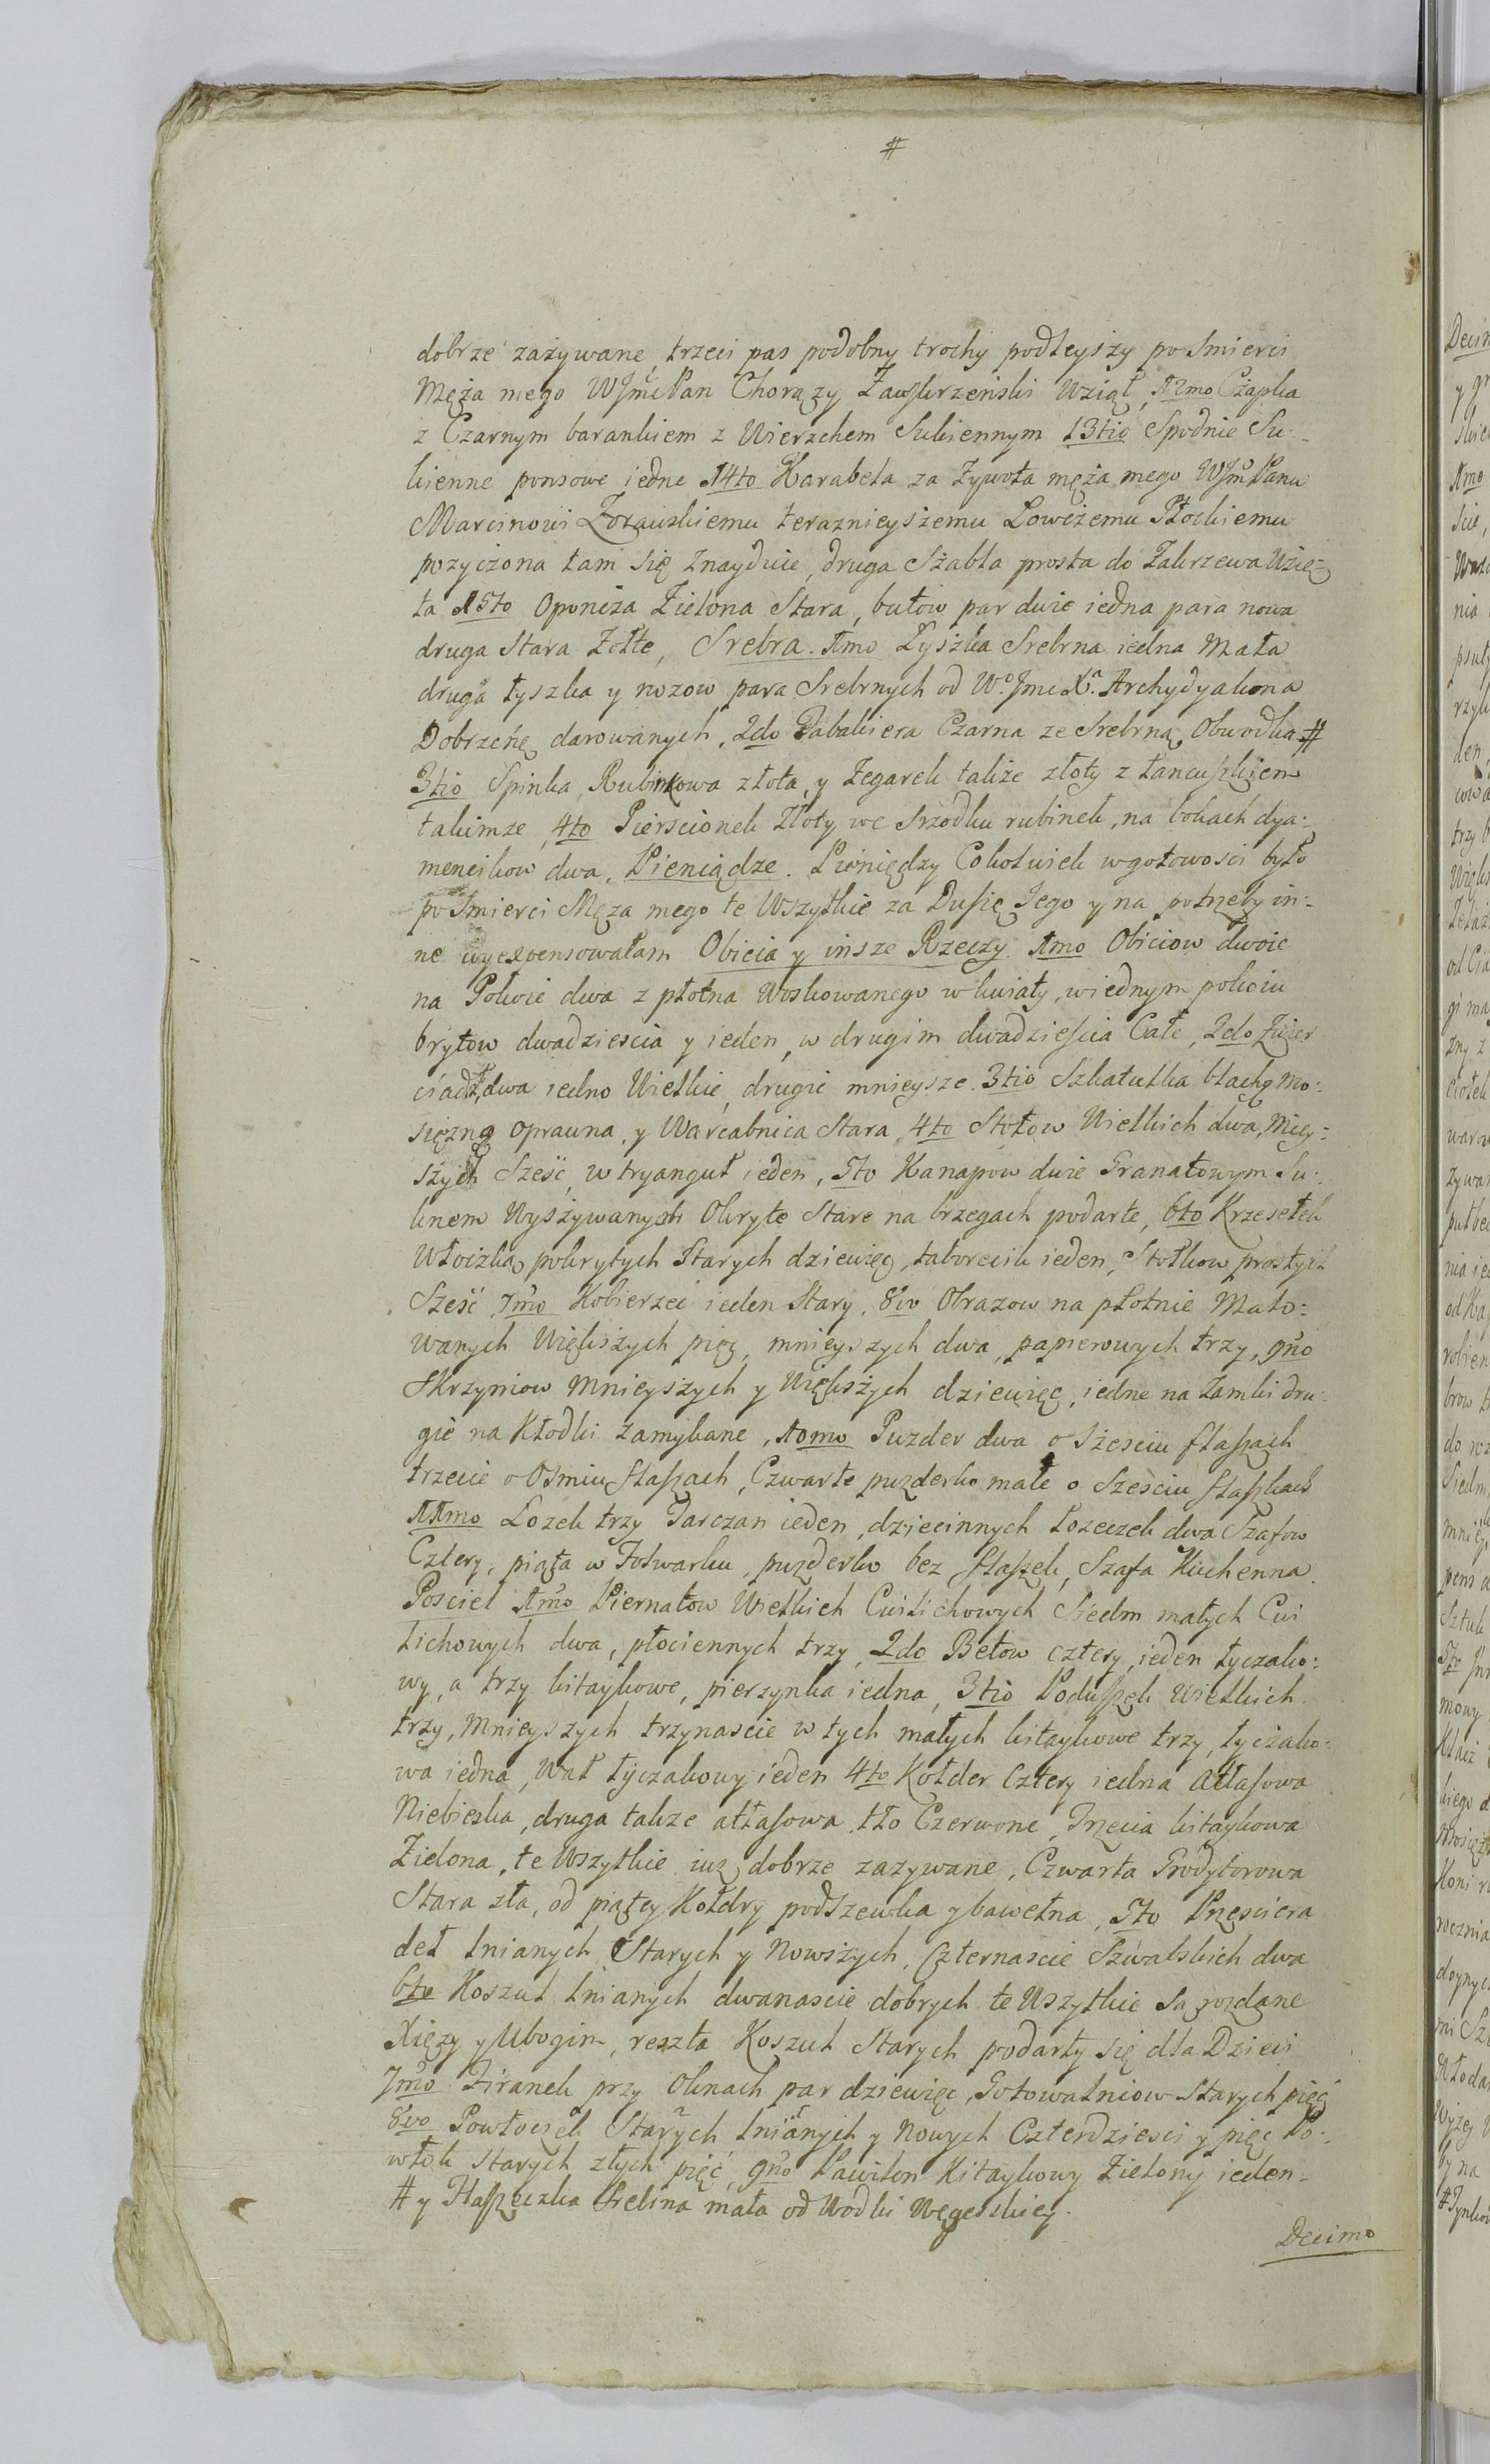 #
dobrze zażywane, trzeci pas podobny trochy podleyszy po Smierci
Męża mego WJmć Pan Chorąży Zawskrzeński Wziął, 12mo Czapka
z Czarnym barankiem z Wierzchem Sukiennym 13tio Spodnie Su:
kienne ponsowe iedne 14to Karabela za Zywota męża mego WJmć Panu
Marcinowi Zorawskiemu teraznieyszemu Łowczemu Płockiemu
pozyczona tam się znayduie, druga Szabla prosta do Zakrzewa Wzię:
ta 15to Opończa Zielona Stara, butow par dwie iedna para nowa
druga Stara Zołte, Srebra. 1mo Łyszka Srebrna iedna Mała
druga łyszka y nozow para Srebrnych od W.o Jmć X.a Archydyakona
Dobrzeńę darowanych, 2do Tabakiera Czarna ze Srebrną Obwodką #
3tio Spinka Rubinkowa złota, y Zegarek takze złoty z Łancuszkiem
takimze, 4to Pierscionek Złoty we Srzodku rubinek, na bokach dya:
mencikow dwa, Pieniądze. Pieniędzy Cokolwiek w gotowosci było
po Smierci Męza mego te Wszytkie za Duszę Jego y na potrzeby in:
ne wyexpensowałam Obicia y insze Rzeczy. 1mo Obiciow dwoie
na Pokoie dwa z płotna Woskowanego w kwiaty, w iednym pokoiu
brytow dwadziescia y ieden, w drugim dwadziescia Całe, 2do Zwier
ciadł, dwa iedno Wielkie, drugie mnieysze. 3tio Szkatułka blachą mo:
siężną oprawna, y Warcabnica Stara, 4to Stołow Wielkich dwa, Mięy:
szych Sześć, w tryanguł ieden, 5to Kanapow dwie Granatowym Su:
knem Wyszywanych Okryte Stare na brzegach podarte, 6to Krzesełek
Włoczką pokrytych Starych dziewięc, taborecik ieden, Stołkow prostych
Sześć, 7mo Kobierzec ieden Stary, 8vo Obrazow na płotnie Malo:
wanych Większych pięc, mnieyszych dwa, papierowych trzy, 9no
Skrzyniow Mnieyszych y Większych dziewięc, iedne na Zamki dru:
gie na Kłodki zamykane, 10mo Puzder dwa o Szesciu flaszach
trzecie o Osmiu flaszach, Czwarte puzderko małe o Sześciu flaszkach
11mo Łozek trzy Tarczan ieden, dziecinnych Łozeczek dwa Szafow
Cztery, piąta w Folwarku, puzderko bez flaszek, Szafa Kuchenna.
Posciel 1mo Piernatow Wielkich Cwilichowych Siedm małych Cwi
lichowych dwa, płociennych trzy, 2do Betow cztery, ieden tyczako:
wy, a trzy kitaykowe, pierzynka iedna, 3tio Poduszek Wielkich
trzy, Mnieyszych trzynascie w tych małych kitaykowe trzy, tyczako:
wa iedna, Wał tyczakowy ieden 4to Kołder Cztery iedna Atłasowa
Niebieska, druga takze atłasowa tło Czerwone, Trzecia kitaykowa
Zielona, te Wszytkie iuz dobrze zazywane, Czwarta Grodytorowa
Stara zła, od piątey Kołdry podszewka y bawełna, 5to Przesciera
deł lnianych Starych y Nowszych, Czternascie Szwabskich dwa
6to Koszul lnianych dwanascie dobrych te Wszytkie Są rozdane
Xięzy y Ubogim, reszta Koszul Starych podarły się dla Dzieci
7mo Firanek przy Oknach par dziewięc, Gotowalniow Starych pięć
8vo Powłoczek Starych lnianych y Nowych Czterdziesci y pięc Po:
włok Starych złych pięć, 9no Pawilon Kitaykowy Zielony ieden.
# y Flaszeczka Srebrna mała od Wodki Węgerskiey.
Decimo